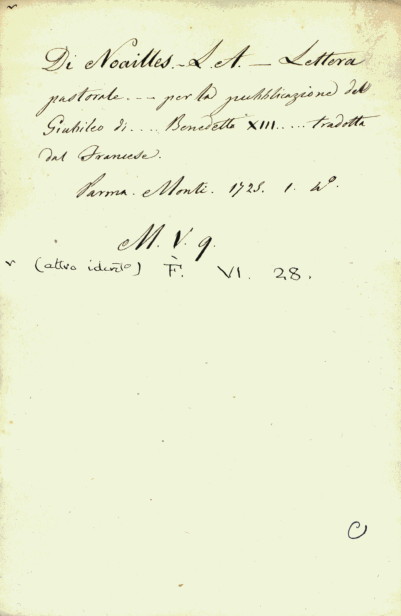 Di Noailles - L. A. - Lettera
pastorale. - - per la pubblicazione del
Giubileo di .... Benedetto XIII .... tradotta
dal Francese.
Parma. Monti. 1725. 1. 4º.
M. V. 9.
(altro ident.º) F. VI. 28.
C